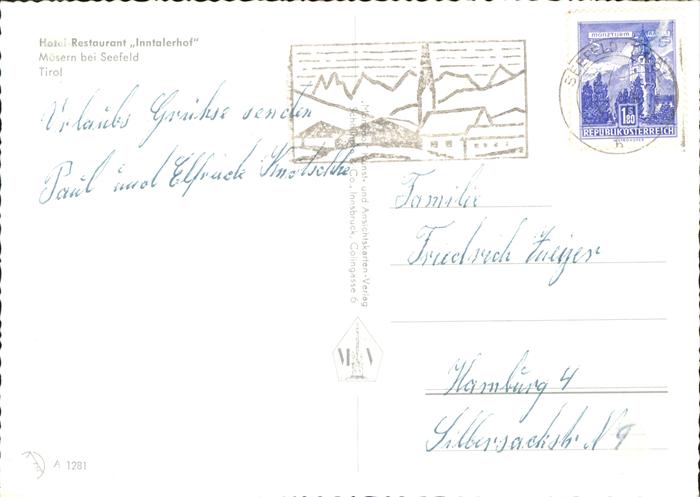 Hotel-Restaurant „Inntalerhof"
Mösern bei Seefeld
Tirol
Urlaubs Grühse senden
Paul und Elfriede
MÜNZTURM
1.80
REPUBLIK ÖSTERREICH
SEEFELD
Kunst- und Ansichtskarten-Verlag
Co., Innsbruck, Colingasse 6
Familie
Friedrich
Hamburg 4
Silbersackstr. N 9
M V
A 1281